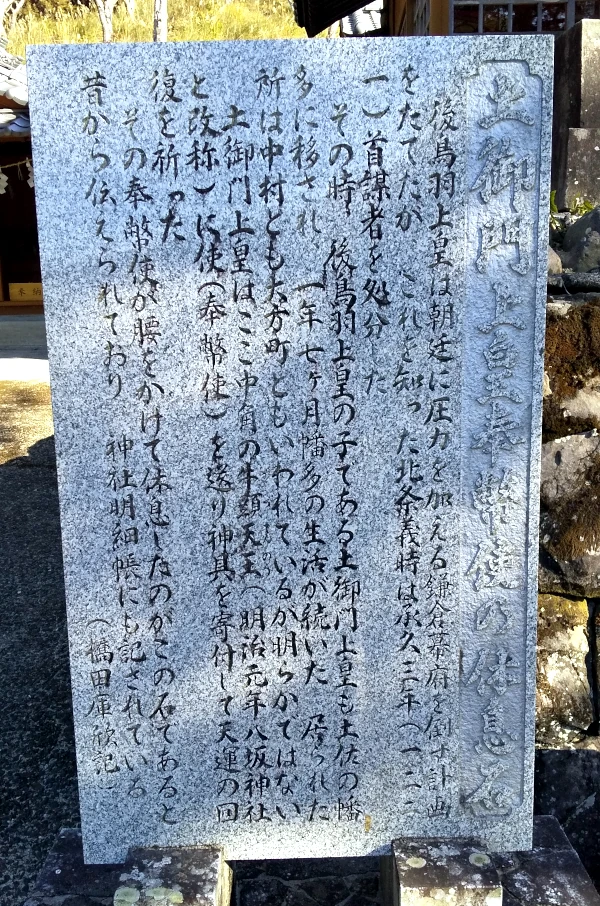 土御門上皇奉幣使の休息石
後鳥羽上皇は朝廷に圧力を加える鎌倉幕府を倒す計画
をたてたが これを知った北条義時は承久三年(一二二
一)首謀者を処分した
その時、後鳥羽上皇の子である土御門上皇も土佐の幡
多に移され、一年七ヶ月幡多の生活が続いた 居られた
所は中村とも大方町ともいわれているが明らかではない
土御門上皇はここ中角の牛頭天王(明治元年八坂神社
と改称)に使(奉幣使)を送り神具を寄付して天運の回
復を祈った
その奉幣使が腰をかけて休息したのがこの石であると
昔から伝えられており 神社明細帳にも記されている
奉納